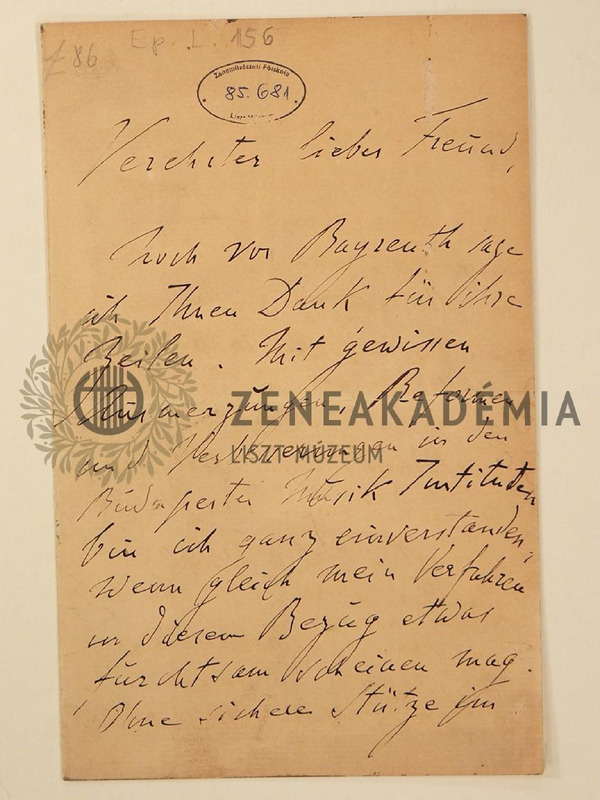 £ 86
Ep. L. 156
Zeneművészeti Főiskola
85.681
Verehrter lieber Freund,
Noch vor Bayreuth sage
ich Ihnen Dank für ihre
Zeilen. Mit gewissen
Ausmerzungen, Reformen
und Verbesserungen in den
ZENEAKADÉMIA
LISZT MÚZEUM
Budapester Musik Instituten
bin ich ganz einverstanden,
wenn gleich mein Verfahren
in diesem Bezug etwas
furchtsam scheinen mag.
Ohne sichere Stütze im